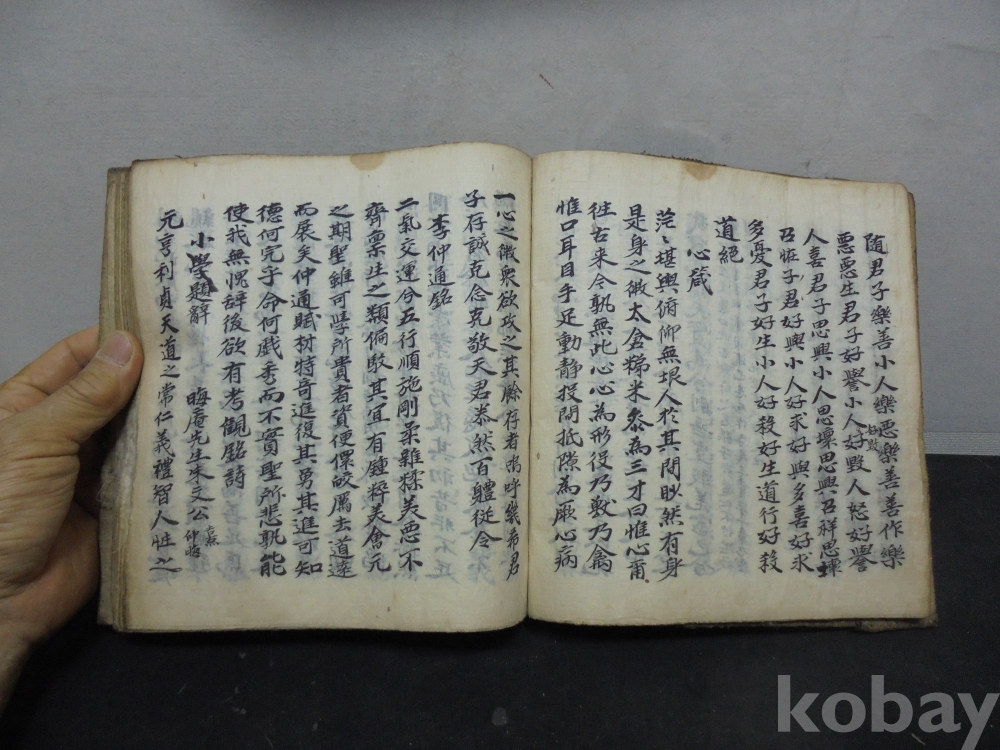 随君子樂善小人樂惡樂善善作樂
惡惡生君子好譽小人好毀人怒好譽
好毀
人喜君子思興小人思壞思興召祥思壞
召恠君子好與小人好求好與多喜好求
多憂君子好生小人好殺好生道行好殺
道絕
心箴
茫〻堪輿俯仰無垠人於其間眇然有身
是身之微太倉稊米參為三才曰惟心爾
徃古來今孰無此心心為形役乃獸乃禽
惟口耳目手足動靜投間抵隙為厥心病
一心之微衆欲攻之其餘存者嗚呼幾希君
子存誠克念克敬天君泰然百體從令
李仲通銘
二氣交運兮五行順施剛柔雜糅美惡不
齊禀生之類偏駁其宜有鍾粹美會元
之期聖雖可學所貴者資便儇皎厲去道遠
而展矣仲通賦材特奇進復其勇其進可知
德何完乎命何戱秀而不實聖所悲孰能
使我無愧辞後欲有考觀銘詩
小學題辭 晦庵先生朱文公 熹 仲晦
元亨利貞天道之常仁義禮智人性之
kobay